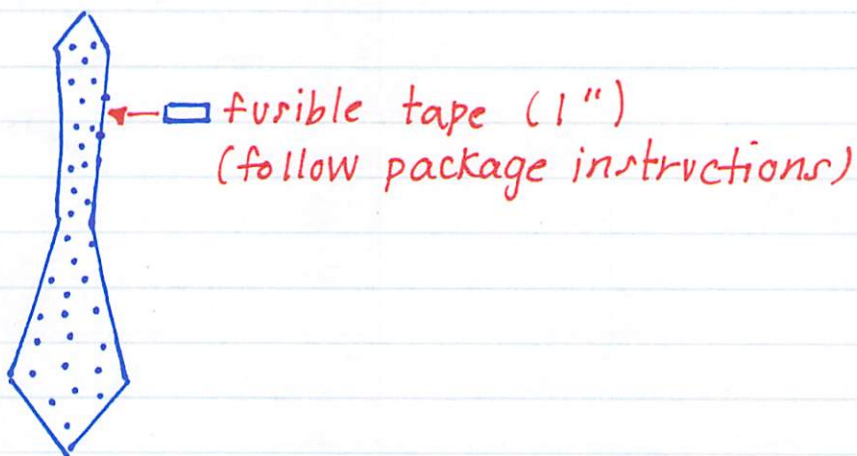 fusible tape (1")
(follow package instructions)